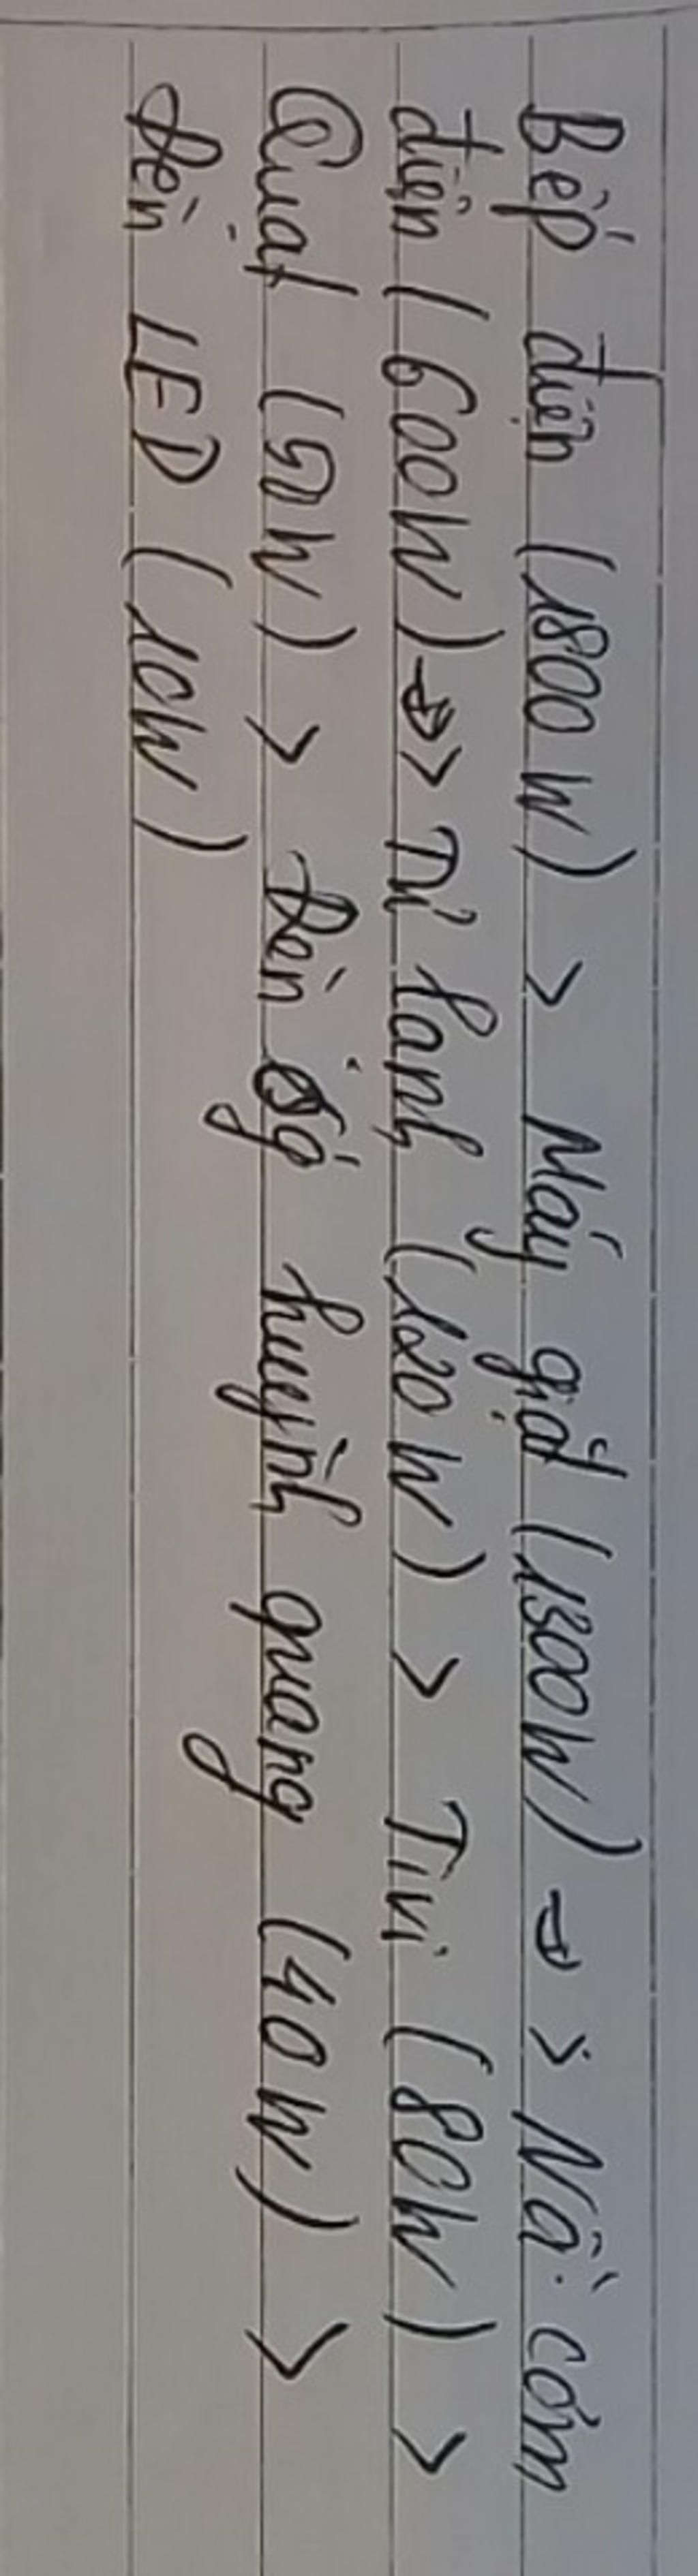 Bếp điện (1800 W) > Máy giặt (1300W) > Nồi cơm
điện (600W) > Tủ lạnh (120W) > Tivi (80W) >
Quạt (50W) > Đèn ống huỳnh quang (40W) >
Đèn LED (10W)